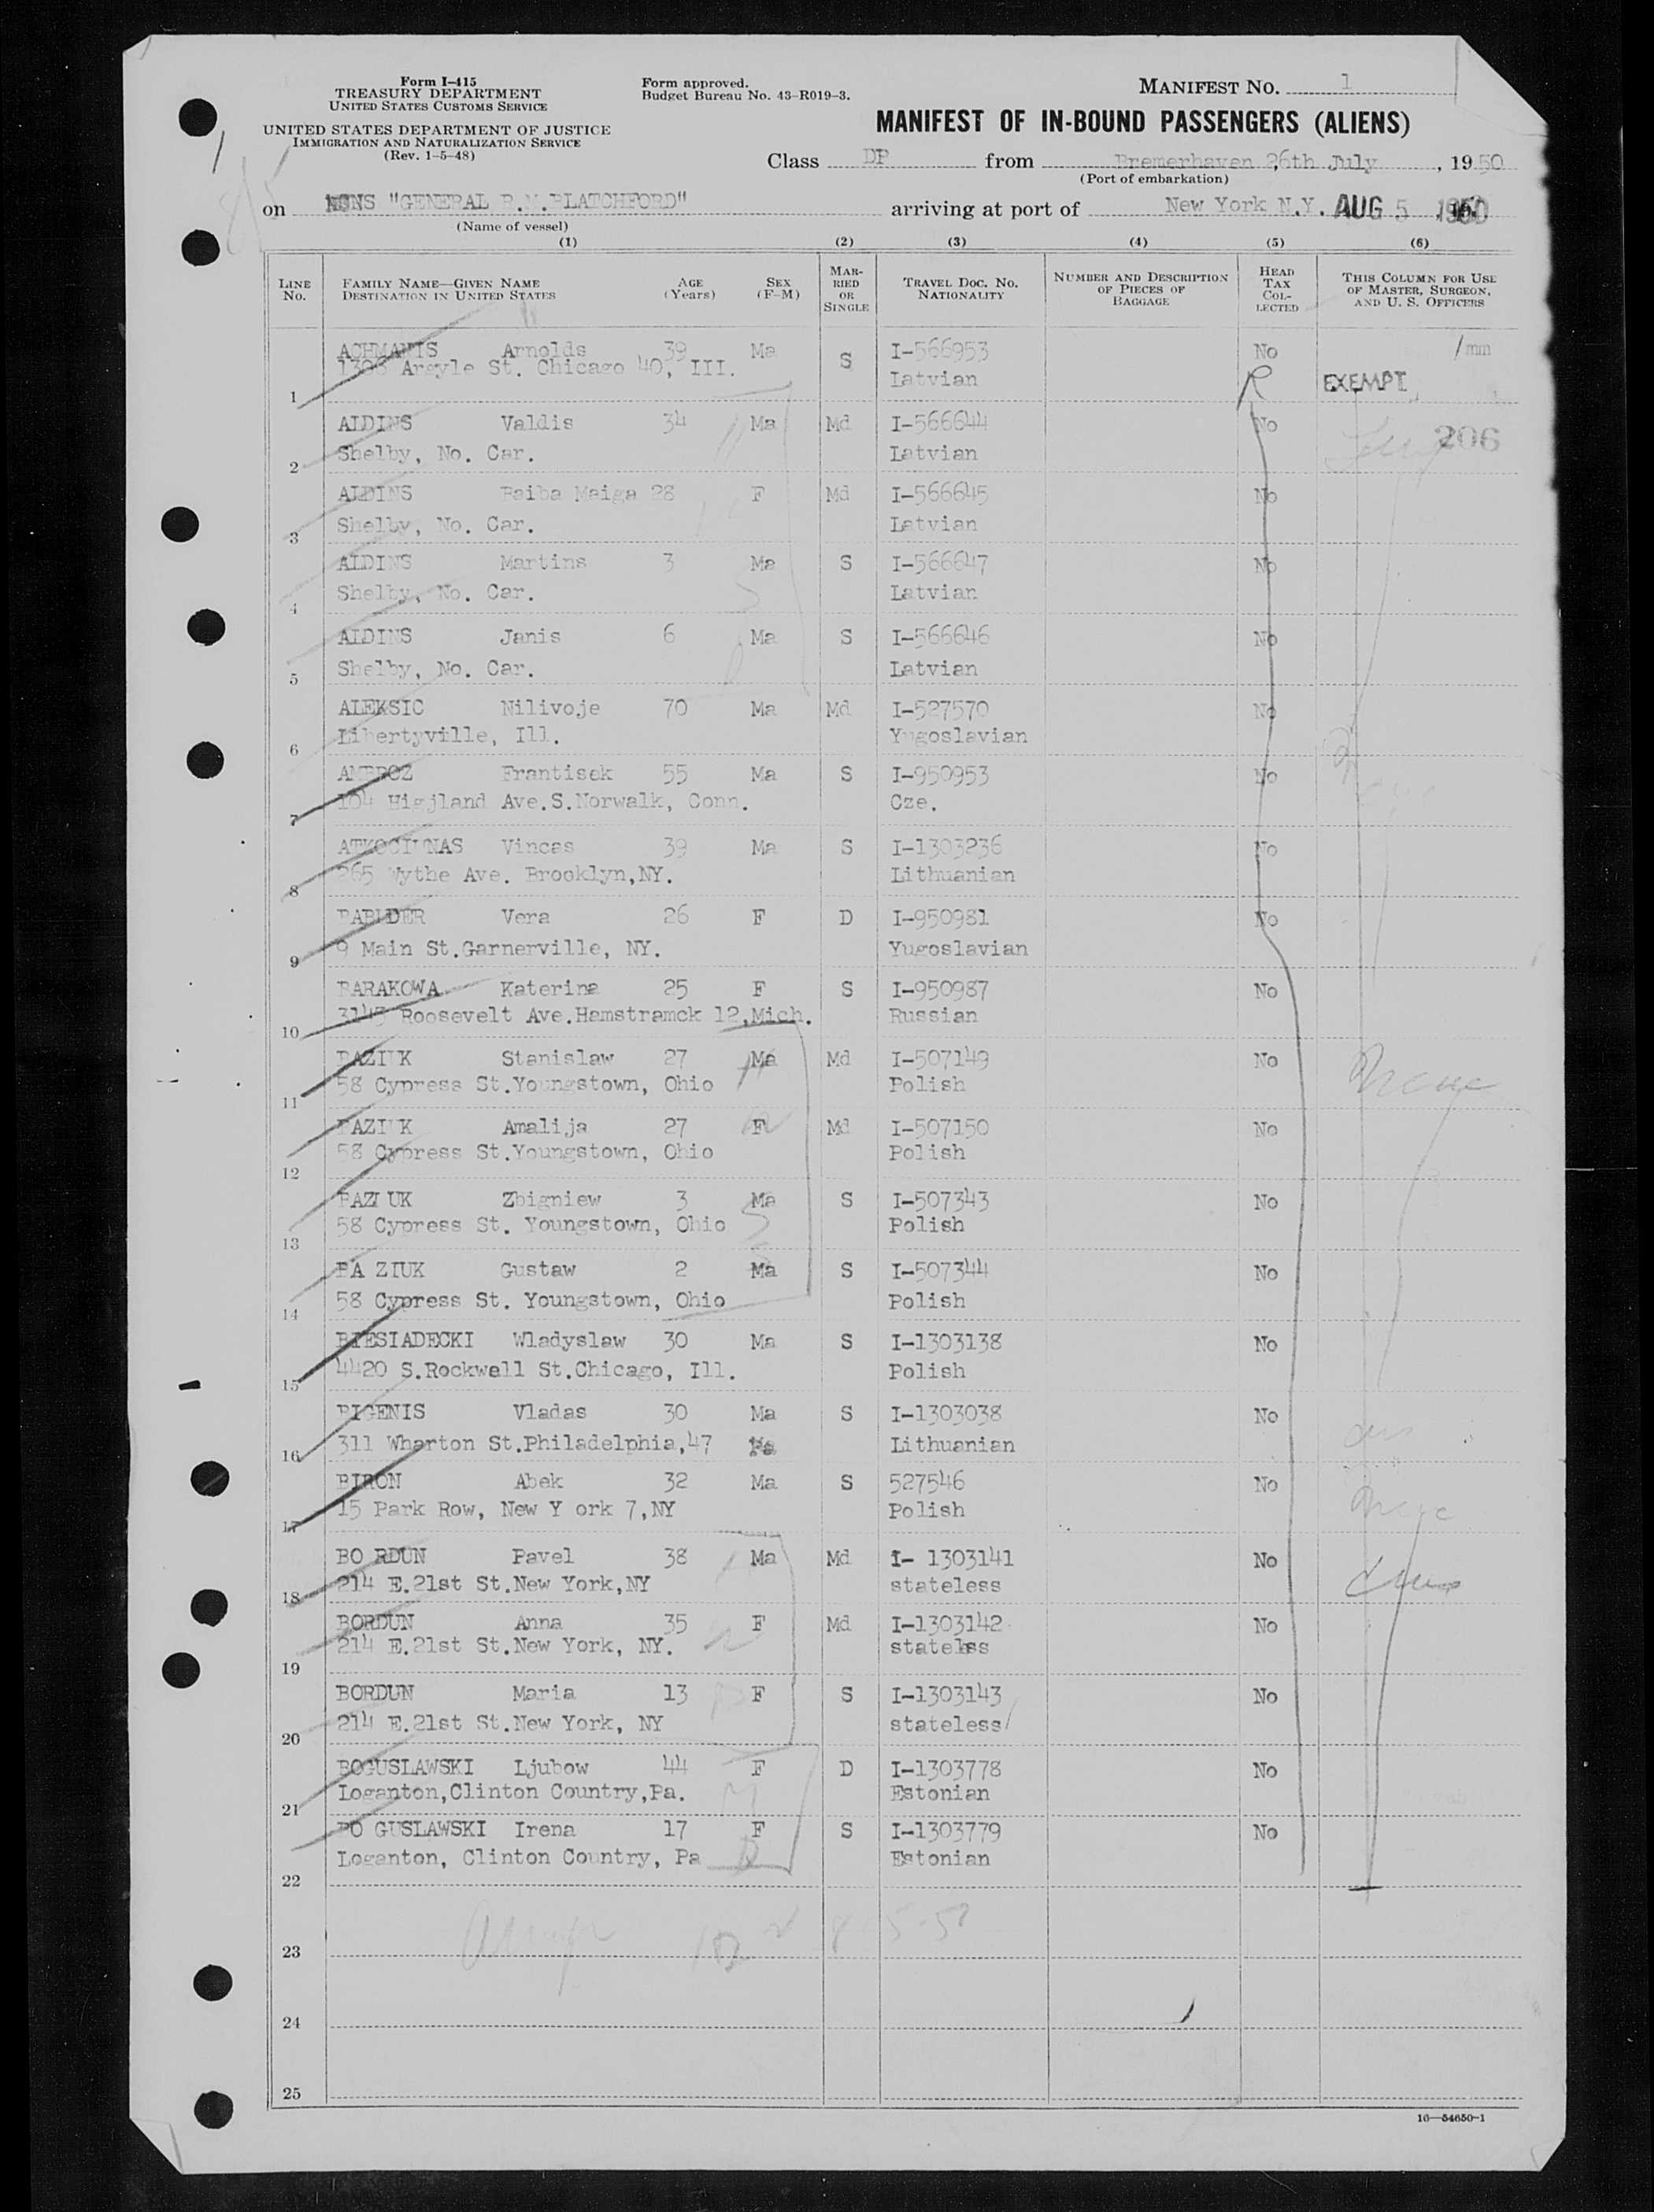 Form I-415
TREASURY DEPARTMENT
UNITED STATES CUSTOMS SERVICE
UNITED STATES DEPARTMENT OF JUSTICE
IMMIGRATION AND NATURALIZATION SERVICE
(Rev. 1-5-48)
Form approved.
Budget Bureau No. 43-R019-3.
MANIFEST NO. 1
MANIFEST OF IN-BOUND PASSENGERS (ALIENS)
Class DP from Bremerhaven 26th July, 1950
(Port of embarkation)
on "GENERAL R.M.BLATCHFORD" arriving at port of New York N.Y. AUG 5 1950
(Name of vessel)
(1) (2) (3) (4) (5) (6)
LINE No. FAMILY NAME—GIVEN NAME DESTINATION IN UNITED STATES AGE (Years) SEX (F-M) MARRIED OR SINGLE TRAVEL DOC. NO. NATIONALITY NUMBER AND DESCRIPTION OF PIECES OF BAGGAGE HEAD TAX COLLECTED THIS COLUMN FOR USE OF MASTER, SURGEON, AND U. S. OFFICERS
ACHMANIS Arnolds 39 Ma S I-566953 No 1mm
1 Argyle St. Chicago 40, III. Latvian R EXEMPT
ALDINS Valdis 34 Ma Md I-566644 No 206
2 Shelby, No. Car. Latvian
ALDINS Baiba Maiga 28 F Md I-566645 No
3 Shelby, No. Car. Latvian
ALDINS Martins 3 Ma S I-566647 No
4 Shelby, No. Car. Latvian
ALDINS Janis 6 Ma S I-566646 No
5 Shelby, No. Car. Latvian
ALEKSIC Nilivoje 70 Ma Md I-527570 No
6 Libertyville, Ill. Yugoslavian
AMBROZ Frantisek 55 Ma S I-950953 No
7 104 Higjland Ave.S.Norwalk, Conn. Cze.
ATKOCIUNAS Vincas 39 Ma S I-1303236 No
8 265 Wythe Ave. Brooklyn,NY. Lithuanian
Vera 26 F D I-950981 No
9 9 Main St.Garnerville, NY. Yugoslavian
BARAKOWA Katerina 25 F S I-950987 No
10 3145 Roosevelt Ave.Hamstramck 12,Mich. Russian
BAZIUK Stanislaw 27 Ma Md I-507149 No
11 58 Cypress St.Youngstown, Ohio Polish
BAZIUK Amalija 27 F Md I-507150 No
12 58 Cypress St.Youngstown, Ohio Polish
BAZIUK Zbigniew 3 Ma S I-507343 No
13 58 Cypress St. Youngstown, Ohio Polish
BA ZIUK Gustaw 2 Ma S I-507344 No
14 58 Cypress St. Youngstown, Ohio Polish
BIESIADECKI Wladyslaw 30 Ma S I-1303138 No
15 4420 S.Rockwell St.Chicago, Ill. Polish
BIGENIS Vladas 30 Ma S I-1303038 No
16 311 Wharton St.Philadelphia,47 Pa Lithuanian
BIRON Abek 32 Ma S 527546 No
17 15 Park Row, New Y ork 7,NY Polish
BO RDUN Pavel 38 Ma Md I- 1303141 No
18 214 E.21st St.New York,NY stateless
BORDUN Anna 35 F Md I-1303142 No
19 214 E.21st St.New York, NY. stateless
BORDUN Maria 13 F S I-1303143 No
20 214 E.21st St.New York, NY stateless
BOGUSLAWSKI Ljubow 44 F D I-1303778 No
21 Loganton,Clinton Country,Pa. Estonian
BO GUSLAWSKI Irena 17 F S I-1303779 No
22 Loganton, Clinton Country, Pa Estonian
23
24
25
16—54650-1